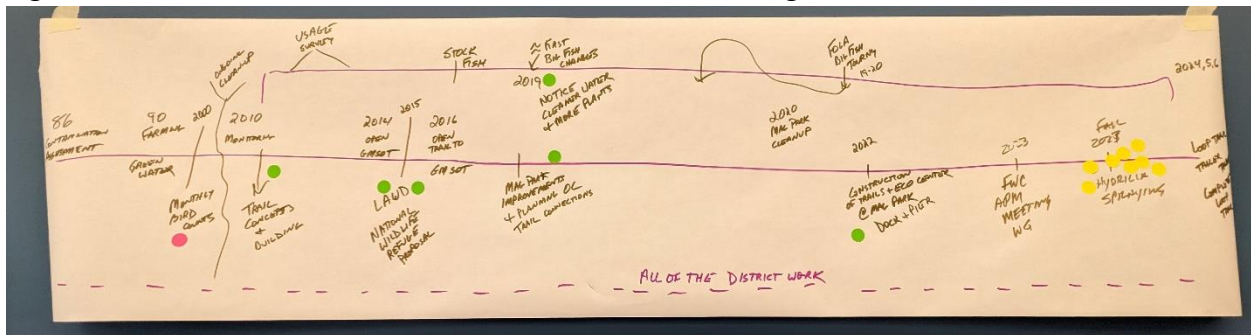 86
CONTAMINATION
ASSESSMENT
90
FARMING
GREEN
WATER
2000
MONTHLY
BIRD
COUNTS
ONGOING
CLEANUP
2010
MONITORING
TRAIL
CONCEPTS
+
BUILDING
USAGE
SURVEY
2014
OPEN
LAWD
NATIONAL
WILDLIFE
REFUGE
PROPOSAL
2015
2016
OPEN
TRAIL TO
STOCK
FISH
≈ FIRST
BIG FISH
CHANGES
2019
NOTICE WATER
CLEANER WATER
+ MORE PLANTS
MAC PARK
IMPROVEMENTS
+ PLANNING
TRAIL CONNECTIONS
2020
MAC PARK
CLEANUP
FOLA
BIG FISH
TOURNY
19-20
2022
CONSTRUCTION
OF TRAILS + ECO CENTER
@ MAC PARK
DOCK + PIER
2023
FWC
APM
MEETING
WG
FALL
2023
HYDRILLA
SPRAYING
2024,5,6
LOOP TRAIL
ALL OF THE DISTRICT WORK